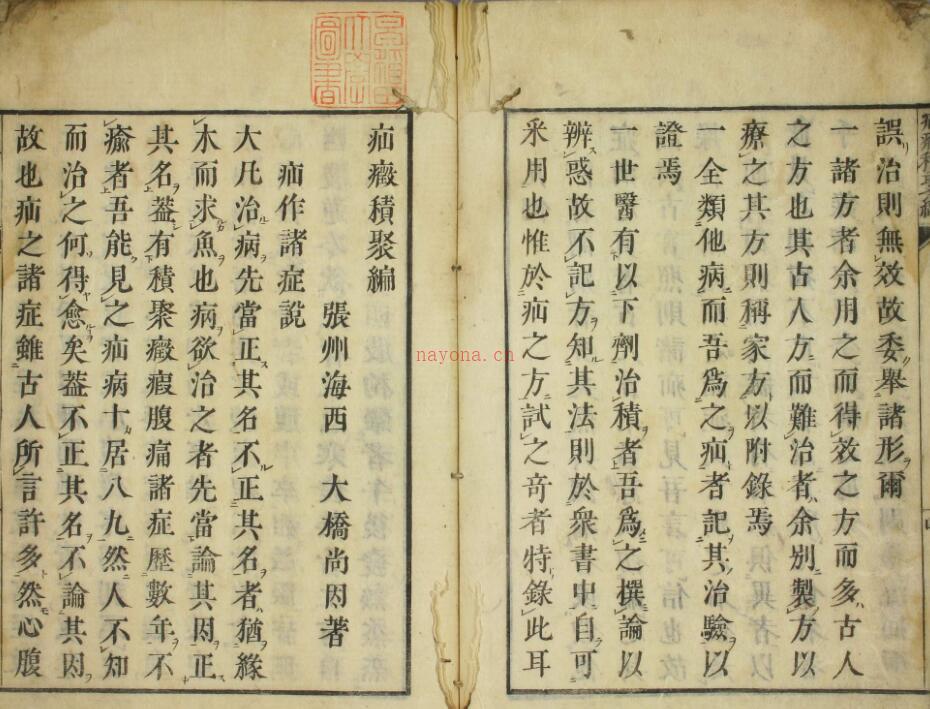 誤治則無效故委舉諸形爾
一諸方者余用之而得效之方而多古人
之方也其古人方而難治者余別製方以
療之其方則稱家方以附錄焉
一全類他病而吾爲之疝者記其治驗以
證焉
一世醫有以下劑治積者吾爲之撰論以
辨惑故不記方知其法則於衆書中自可
釆用也惟於疝之方試之奇者特錄此耳
疝癥積聚編
張州海西 大橋尚因著
疝作諸症說
大凡治病先當正其名不正其名者猶緣
木而求魚也病欲治之者先當論其因正
其名葢有積聚癥瘕腹痛諸症歷數年不
瘉者吾能見之疝病十居八九然人不知
而治之何得愈矣葢不正其名不論其因
故也疝之諸症雖古人所言許多然心腹
nayona.cn